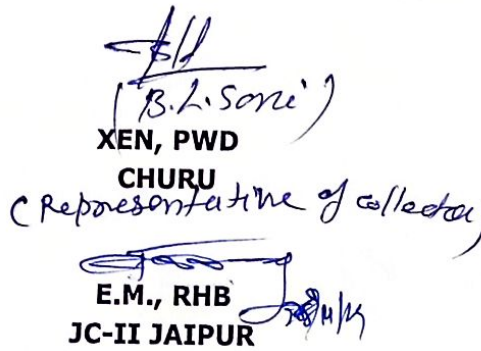 (B.L. Soni)
XEN, PWD
CHURU
(Representative of collector)
E.M., RHB
JC-II JAIPUR